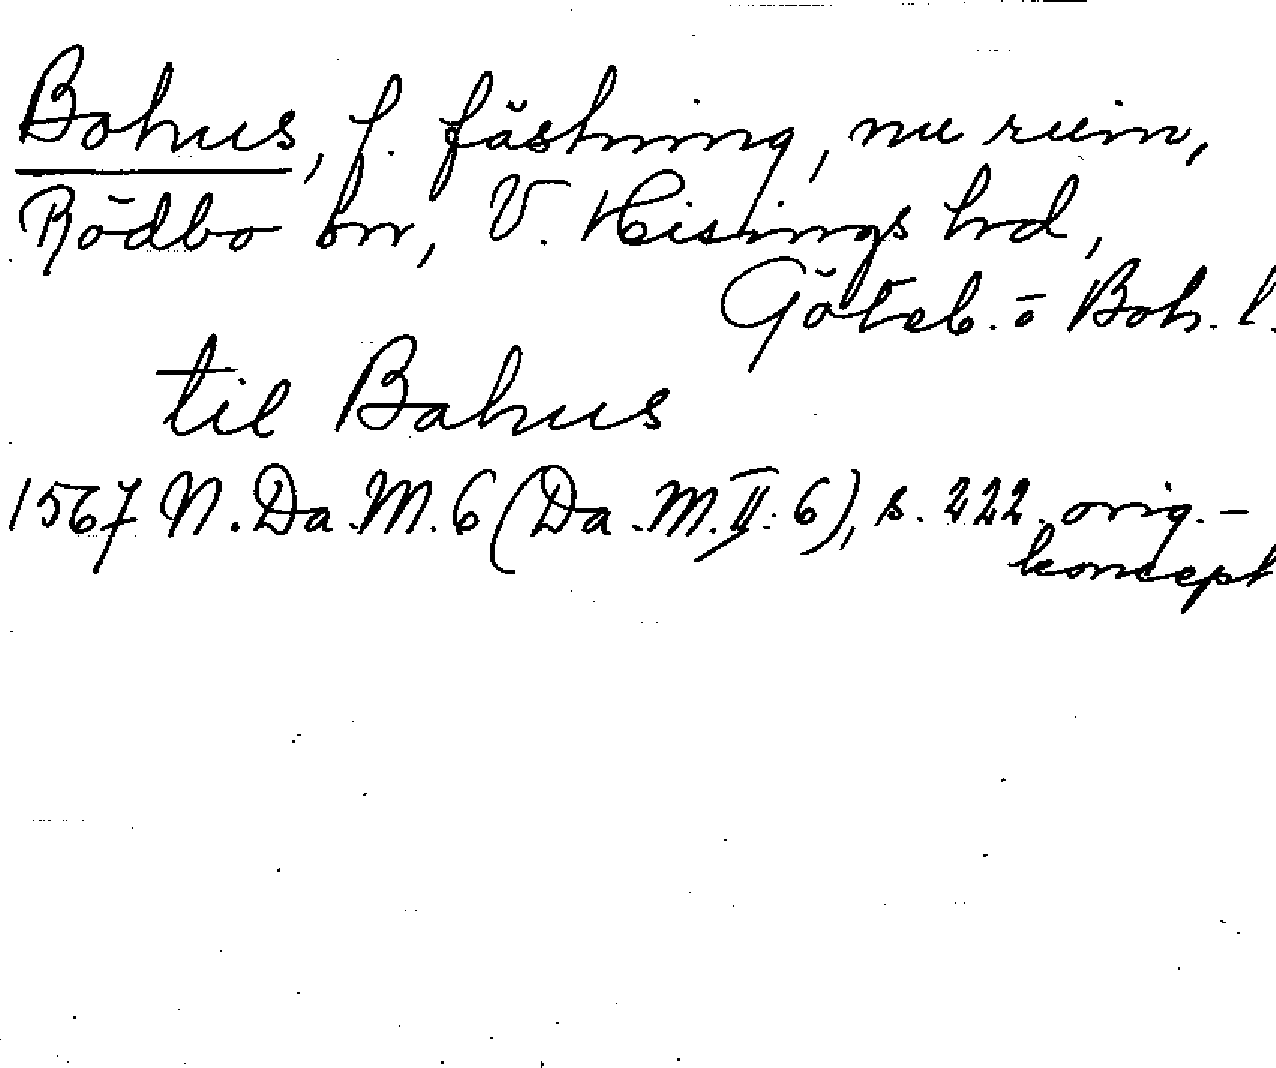 Bohus, f. fästning, nu ruin,
Rödbo sn, V. Hisings hd,
Göteb. o Boh. l.
til Bahus
1567 N. Da. M. 6 (Da. M. II. 6), s. 222, orig.-
koncept